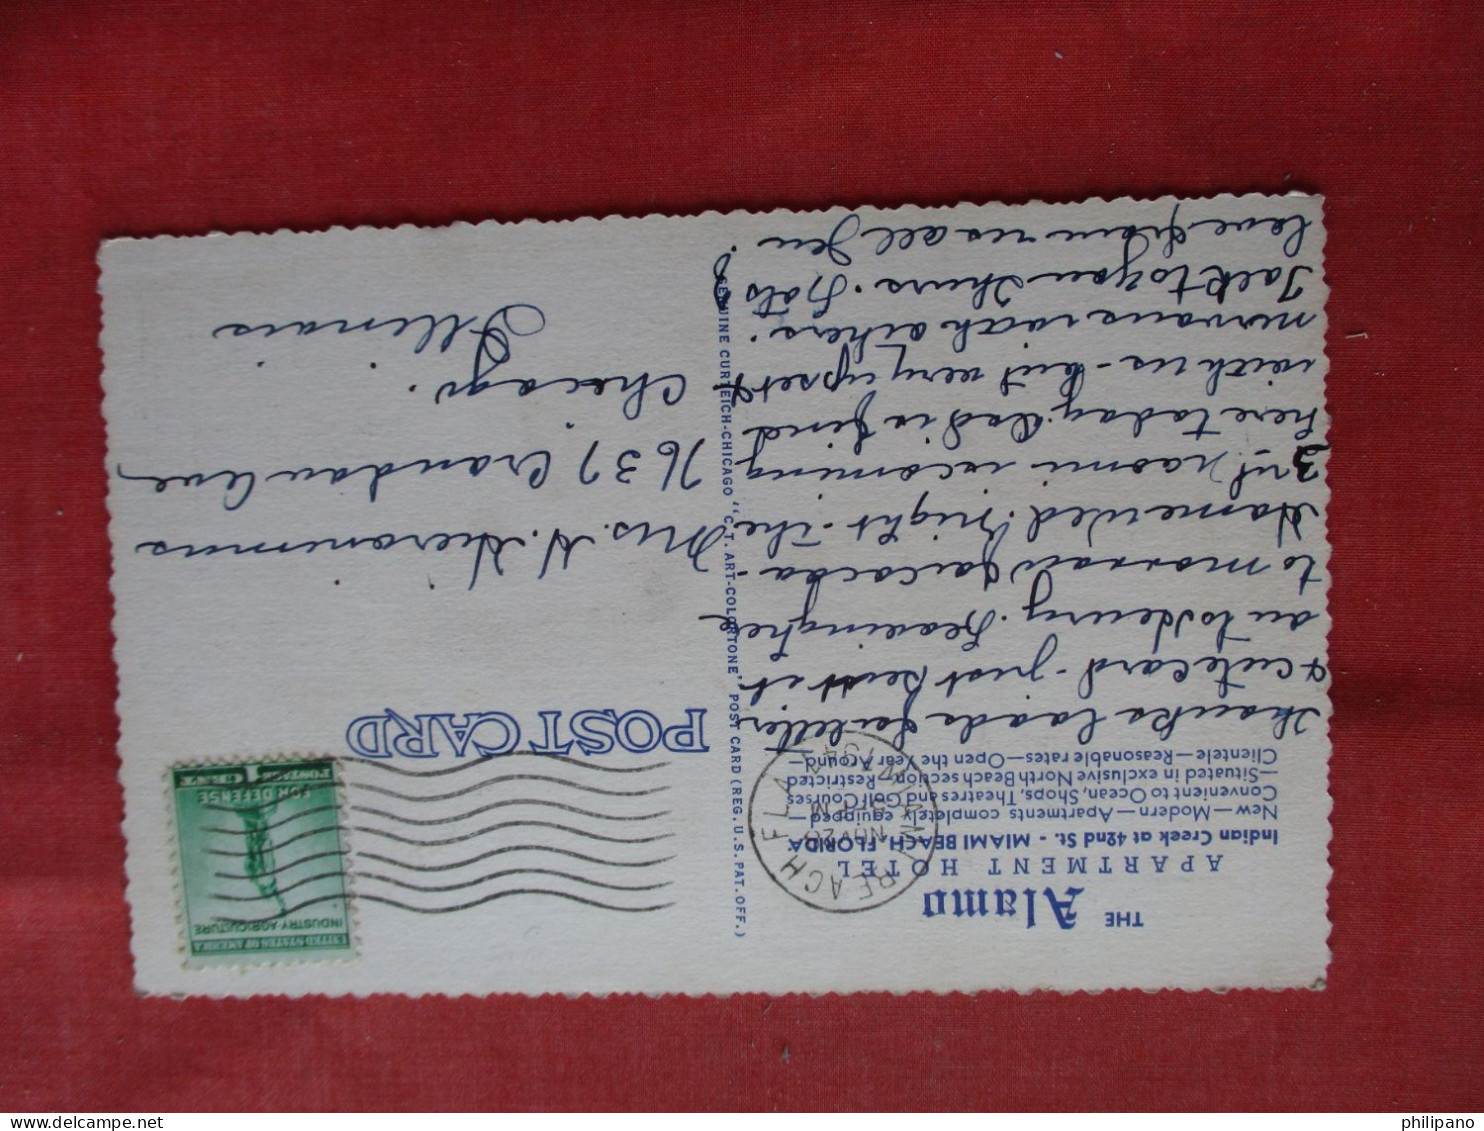 THE Alamo
APARTMENT HOTEL
Indian Creek at 42nd St. - MIAMI BEACH, FLORIDA
New — Modern — Apartments completely equipped —
Convenient to Ocean, Shops, Theatres and Golf Courses
— Situated in exclusive North Beach section — Restricted
Clientele — Reasonable rates — Open the Year Around —
Thanks loads for letter
& cute card - just sent it
on to Henry. Leaving
tomorrow for
Home Wed. night - the
3rd. Naomi is coming
here today. Dad is fine
with us - but very upset &
nervous with others.
Talk to you Thurs. Lots
love from us all Jen
MIAMI BEACH FLA
NOV 20
PM
POST CARD
UNITED STATES OF AMERICA
INDUSTRY-AGRICULTURE
FOR DEFENSE
POSTAGE 1 CENT
Mrs. N. Hieronimus
7637 Crandon Ave
Chicago.
Illinois
GENUINE CURTEICH-CHICAGO "C.T. ART-COLORTONE" POST CARD (REG. U.S. PAT. OFF.)
philipano